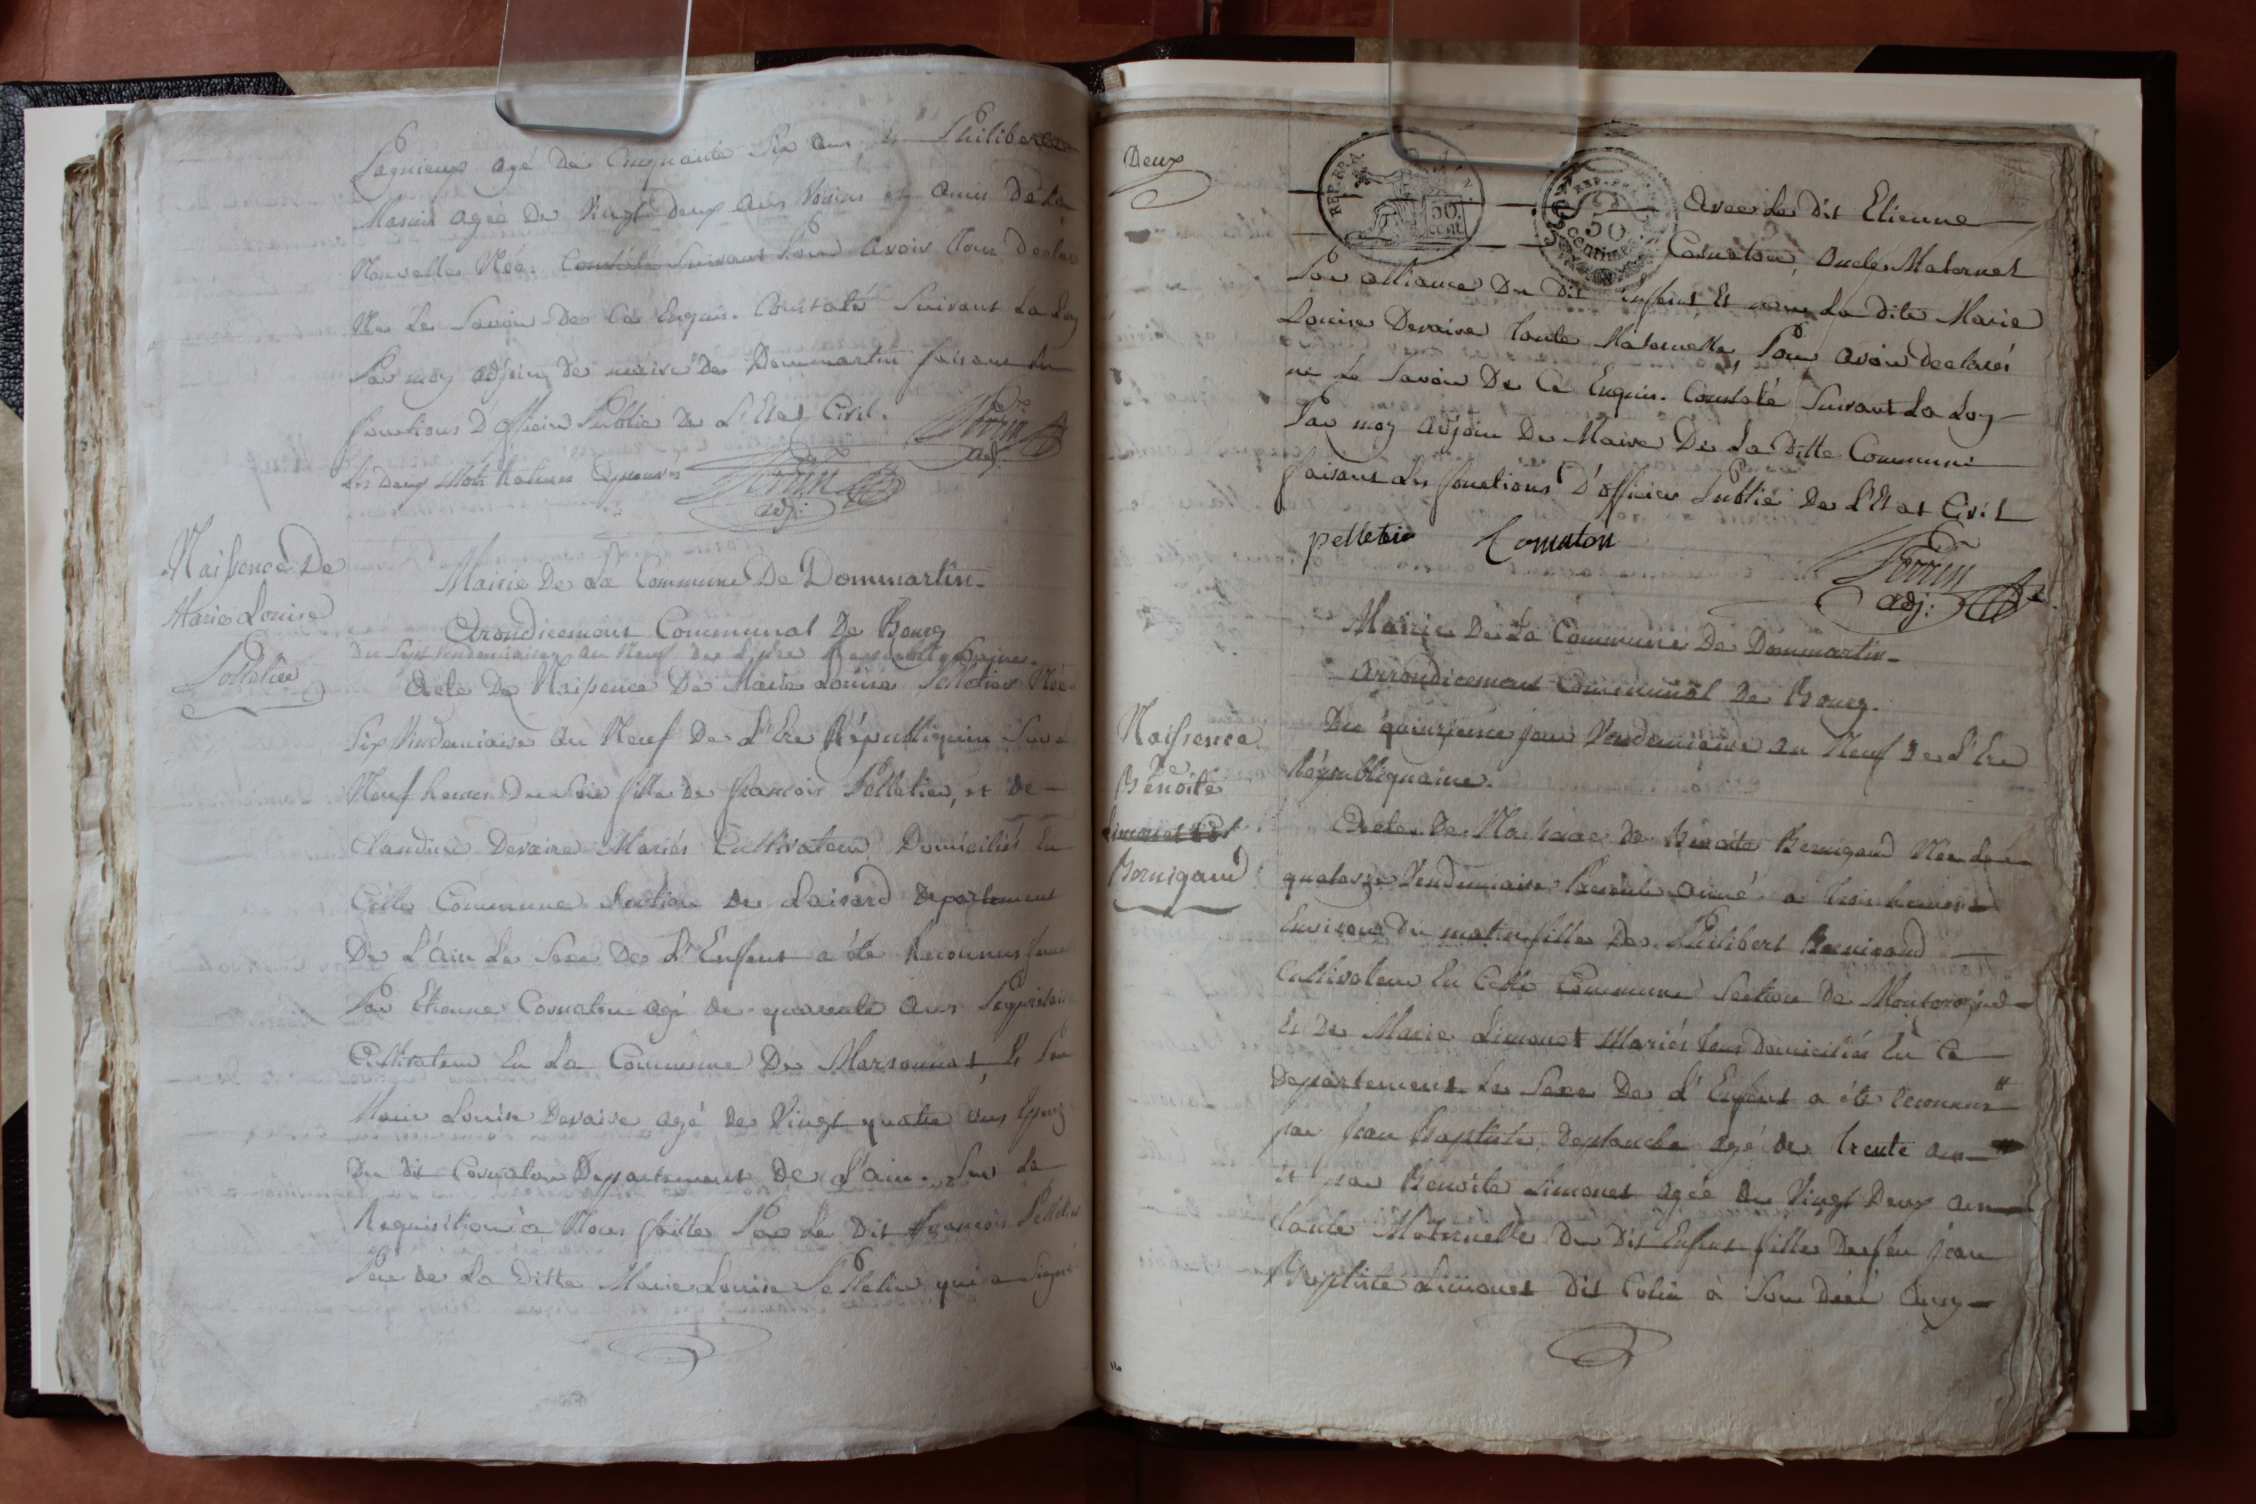 Lagnieux agé de Cinquante Six ans et Philiberte
Maruis agée de Vingt deux ans Voisins et amis de La
Nouvelle Née. Constaté Suivant Pour avoir Tous declaré
Ne Le Savoir de Ce Enquis. Constaté Suivant La Loy
Par moy adjoin de maire de Dommartin faisant les
fonctions D'officier Public de L'Etat Civil.
Perrin
adj.
Les deux Mots Raturés Aprouvés
Perrin
adj:
Naissence De
Marie Louise
Pelletier
Mairie De La Commune De Dommartin.
Arondicement Communal De Bourg
Du Sept Vendemiaire an Neuf de L'ere Republiquaine.
Acte De Naissence De Marie Louise Pelletier Née
Six Vindemiaire an Neuf De L'Ere Républiquin Sur
Neuf heures Du Soir fille de francois Pelletier, et de
Claudine Devaire Mariés Cultivateur Domiciliés En
Cette Commune Section De Loisard Departement
De L'ain Le Sexe De L'Enfent a été Reconnus
Par Etienne Cornaton agé de quarente ans Propriétaire
Cultivateur En La Commune De Marsonnat, Et Par
Marie Louise Devaire agé de Vingt quatre ans
Du dit Cornaton Departement De L'ain. Sur La
Requisition à Nous faitte Par Le Dit françois Pelletier
Pere de La Ditte Marie Louise Pelletier qui a Signé
Deux
REP. FRA.
50
cent.
REP. FRA.
50
centimes
Avec Le Dit Etienne
Cornaton, Oncle Maternel
Par alliance Du Dit enfent Et non La dite Marie
Louise Devaire tante Maternelle, Pour avoir declarés
ne Le Savoir De Ce Enquis. Constaté Suivant La Loy
Par moy adjoin De Maire De La Ditte Commune
faisant Les fonctions D'officier Public De L'Etat Civil
pelletie Cornaton
Perrin
adj:
Mairie De La Commune De Dommartin.
arrondicement Communal De Bourg.
Naissence
de
Benoite
Limonet dit
Bernigaud
Du quinzieme jour Vendemiaire an Neuf De L'Ere
Républiquaine.
Acte De Naissence de Benoite Bernigaud Née Le
quatorze Vendemiaire Presente anné a trois heures
Environ Du matin fille De Philibert Bernigaud
Cultivateur En Cette Commune Section De Montorojnd
Et De Marie Limonet Mariés tous domiciliés En Ce
Departement Le Sexe De L'Enfent a été reconnus
par Jean Baptiste Deplanche agé de trente ans
et par Benoite Limonet agée De Vingt Deux ans
tante Maternelle Du Dit Enfent fille De feu Jean
Baptiste Limonet Dit Colin à Son Décé